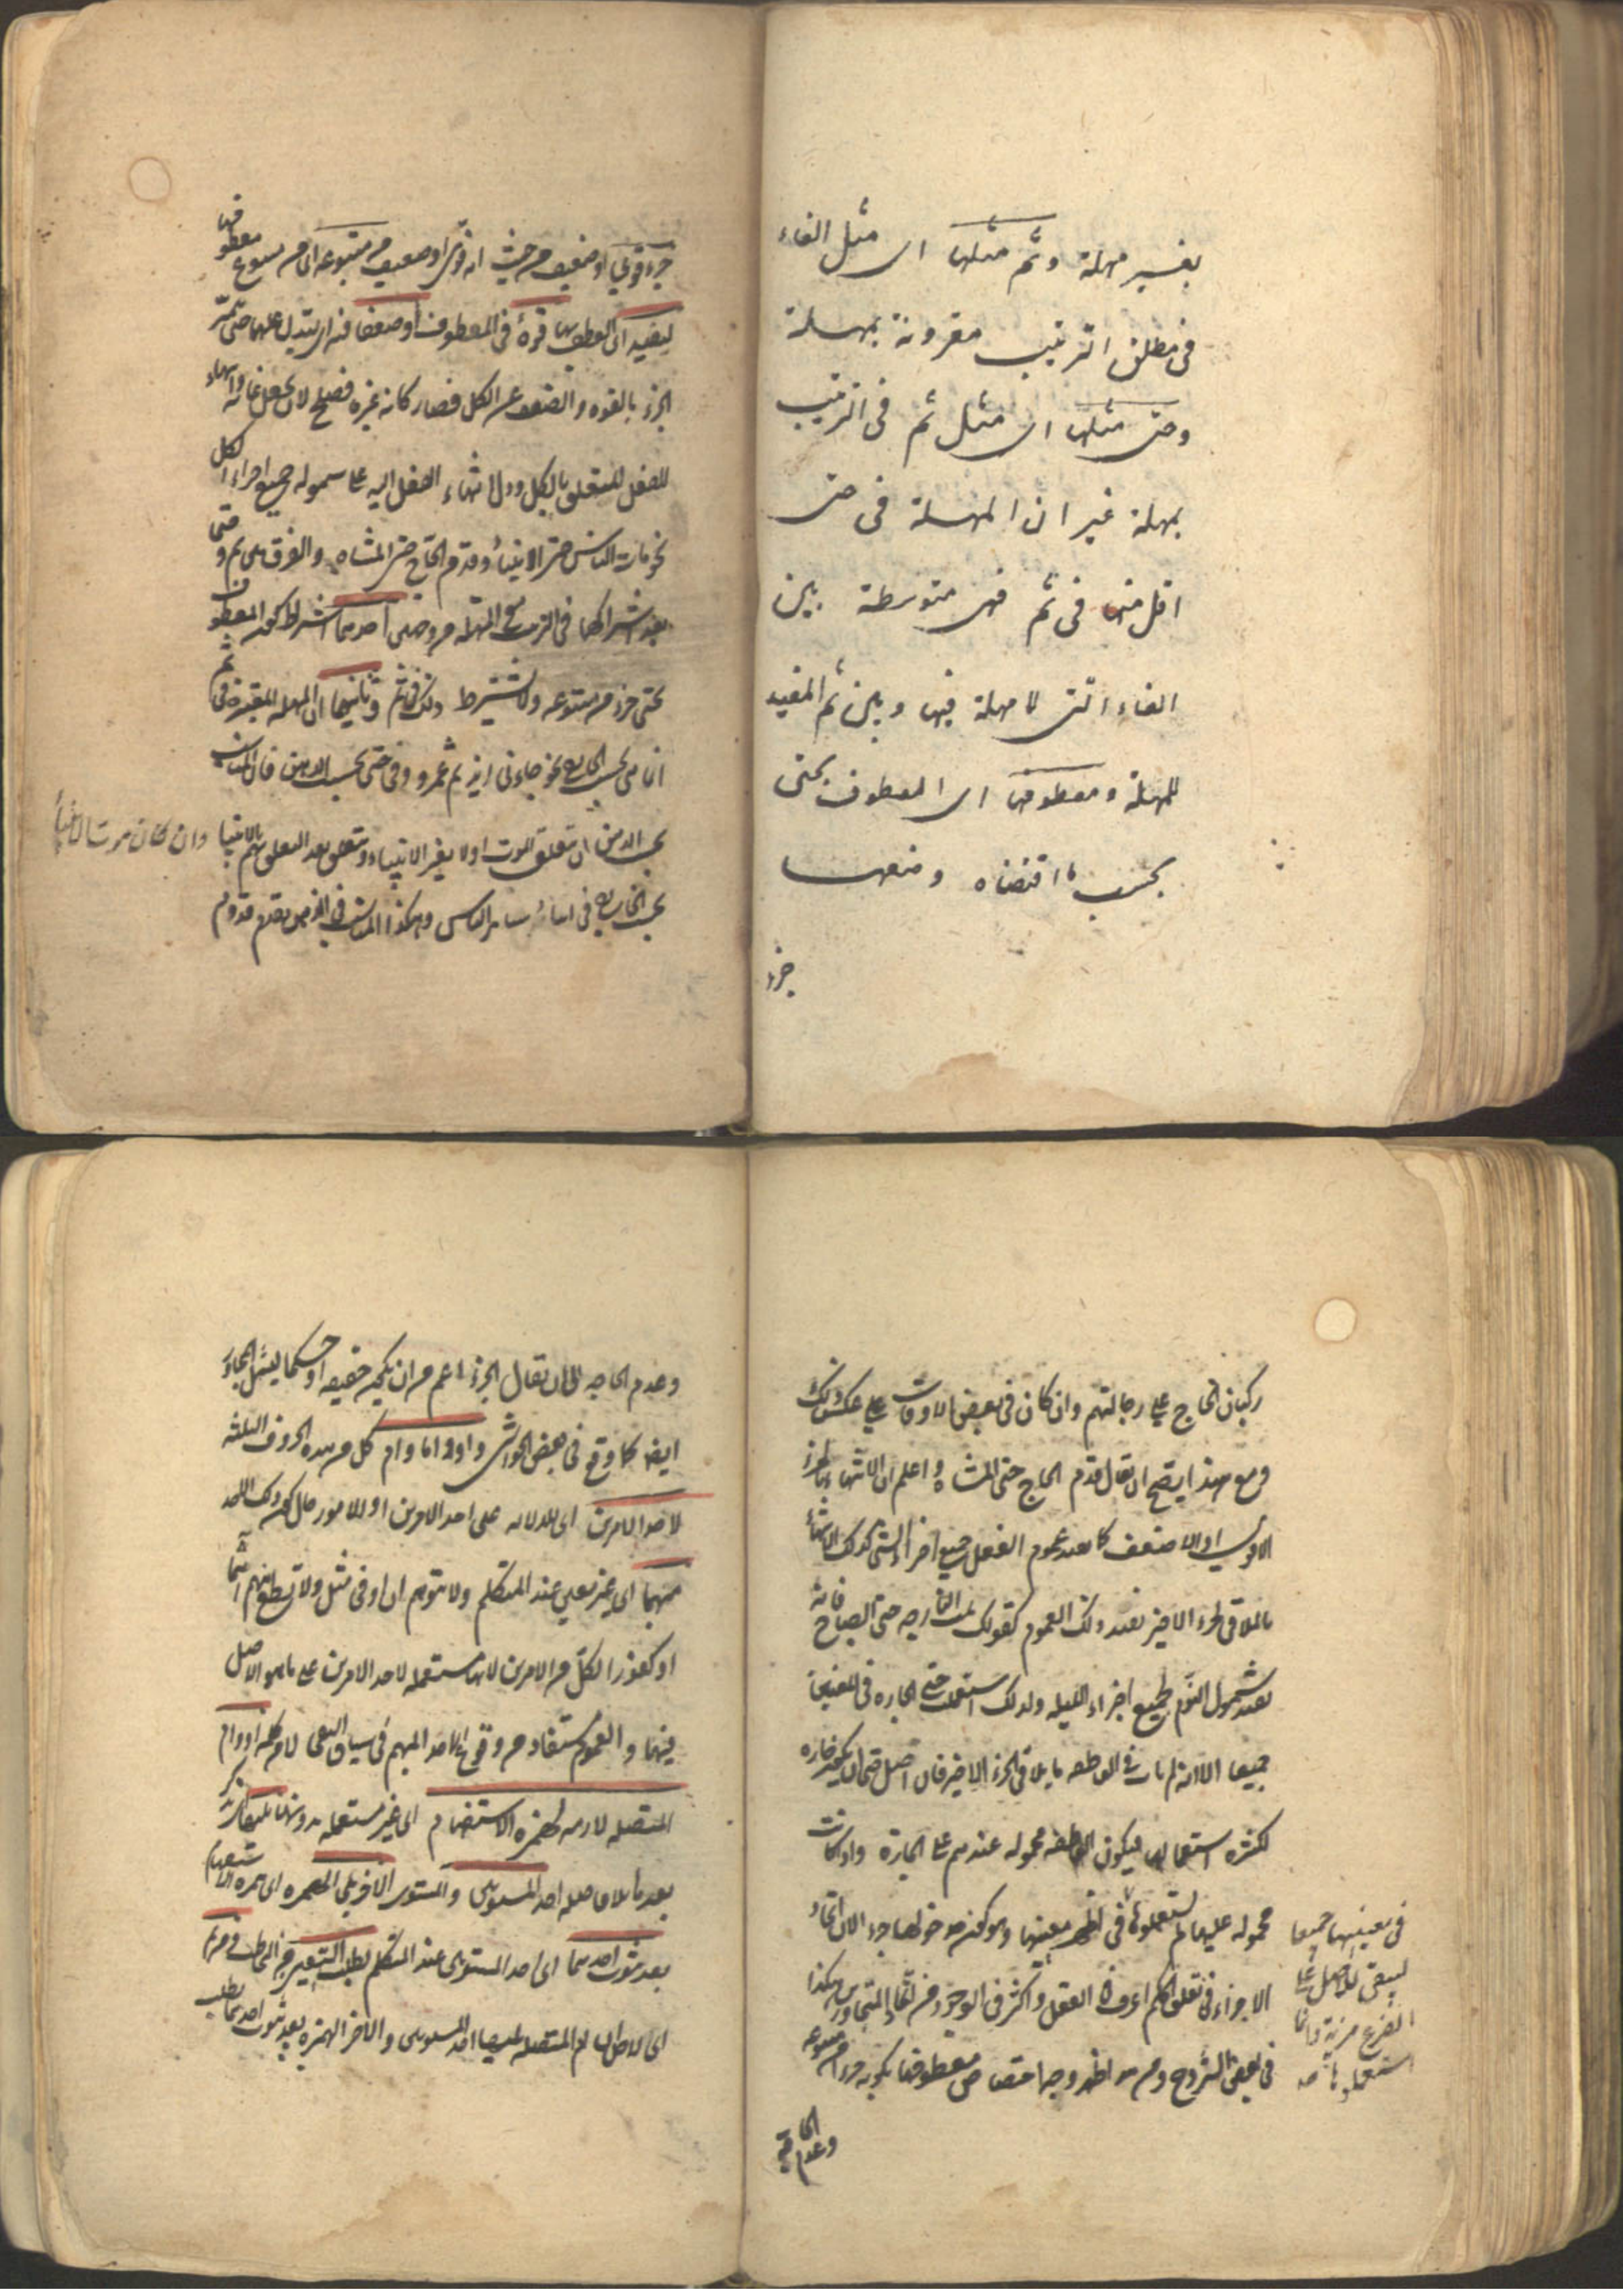 بغير مهلة وثم مثلها اى مثل الفاء
فى مطلق الترتيب مقرونة بمهلة
وحتى مثلها اى مثل ثم فى الترتيب
بمهلة غير ان المهلة فى حتى
اقل منها فى ثم فهى متوسطة بين
الفاء التى لا مهلة فيها وبين ثم المفيد
للمهلة ومعطوفها اى المعطوف بحتى
بحسب ما اقتضاه وضعها
جزء
جزء قوى او ضعيف من حيث انه قوى او ضعيف من متبوعه اى من متبوع معطوفها
ليفيد اى العطف بها قوة فى المعطوف او ضعفا فيه اى يتدل عليهما حتى تميز
الجزء بالقوة والضعف عن الكل فصار كانه غيره فصلح لان يجعل غاية وانتهاء
للفعل المتعلق بالكل ودل انتهاء الفعل اليه على شموله جميع اجزاء الكل
نحو مات الناس حتى الانبياء وقدم الحاج حتى المشاة والفرق بين ثم وحتى
بعد اشتراكهما فى الترتيب مع المهلة من وجهين احدهما اشتراط كون المعطوف
بحتى جزء من متبوعه ولا يشترط ذلك فى ثم وثانيهما ان المهلة المعتبرة فى ثم
انما هى بحسب الخارج نحو جاءنى زيد ثم عمرو وفى حتى بحسب الذهن فان المناسب
بحسب الذهن ان يتعلق الموت اولا بغير الانبياء ويتعلق بعد التعلق بهم بالانبياء وان كان موت الانبياء
بحسب الخارج فى اثناء سائر الناس وهكذا المناسب فى الذهن تقدم قدوم
ركبان الحاج على رجالتهم وان كان فى بعض الاوقات على عكس ذلك
ومع هذا يصح ان يقال قدم الحاج حتى المشاة واعلم ان الانتهاء بالجزء
الاقوى او الاضعف كما يفيد عموم الفعل جميع اجزاء الشئ كذلك الانتهاء
بالملاقى للجزء الاخير يفيد ذلك العموم كقولك نمت البارحة حتى الصباح فانه
يفيد شمول النوم لجميع اجزاء الليلة ولذلك استعملت حتى الجارة فى المعنيين
جميعا الا انه لم يأت فى العاطفة ما يلاقى الجزء الاخير فان اصل حتى ان يكون جارة
لكثرة استعمالها فيكون العاطفة محمولة عندهم على الجارة واذا كانت
محمولة عليها لم يستعملوها فى اظهر معنييها وهو كون مدخولها جزء الان اتحاد
الاجزاء فى تعلق الحكم اعرف فى العقل واكثر فى الوجود من اتحاد المتجاورين هكذا
فى بعض الشروح ومن هذا ظهر وجه اختصاص معطوفها بكونه جزءا من متبوعه
وعدم الحاجة
فى معنييها جميعا
ليبقى للاصل على
الفرع مزية وانما
استعملوها صح
وعدم الحاجة الى ان يقال الجزء اعم من ان يكون حقيقة او حكما ليشمل المجاور
ايضا كما وقع فى بعض الحواشى واو واما وام كل من هذه الحروف الثلثة
لاحد الامرين اى للدلالة على احد الامرين او الامور حال كون ذلك الاحد
مبهما اى غير معين عند المتكلم ولا يتوهم ان او فى مثل ولا تطع منهم آثما
او كفورا لكل من الامرين لانها مستعملة لاحد الامرين على ما هو الاصل
فيها والعموم مستفاد من وقوع الاحد المبهم فى سياق النفى لا من كلمة او وام
المتصلة لازمة لهمزة الاستفهام اى غير مستعملة بدونها يليها
بعدها بلا فاصلة احد المستويين والمستوى الاخر يلى الهمزة اى همزة الاستفهام
بعد ثبوت احدهما اى احد المستويين عند المتكلم لطلب التعيين من المخاطب